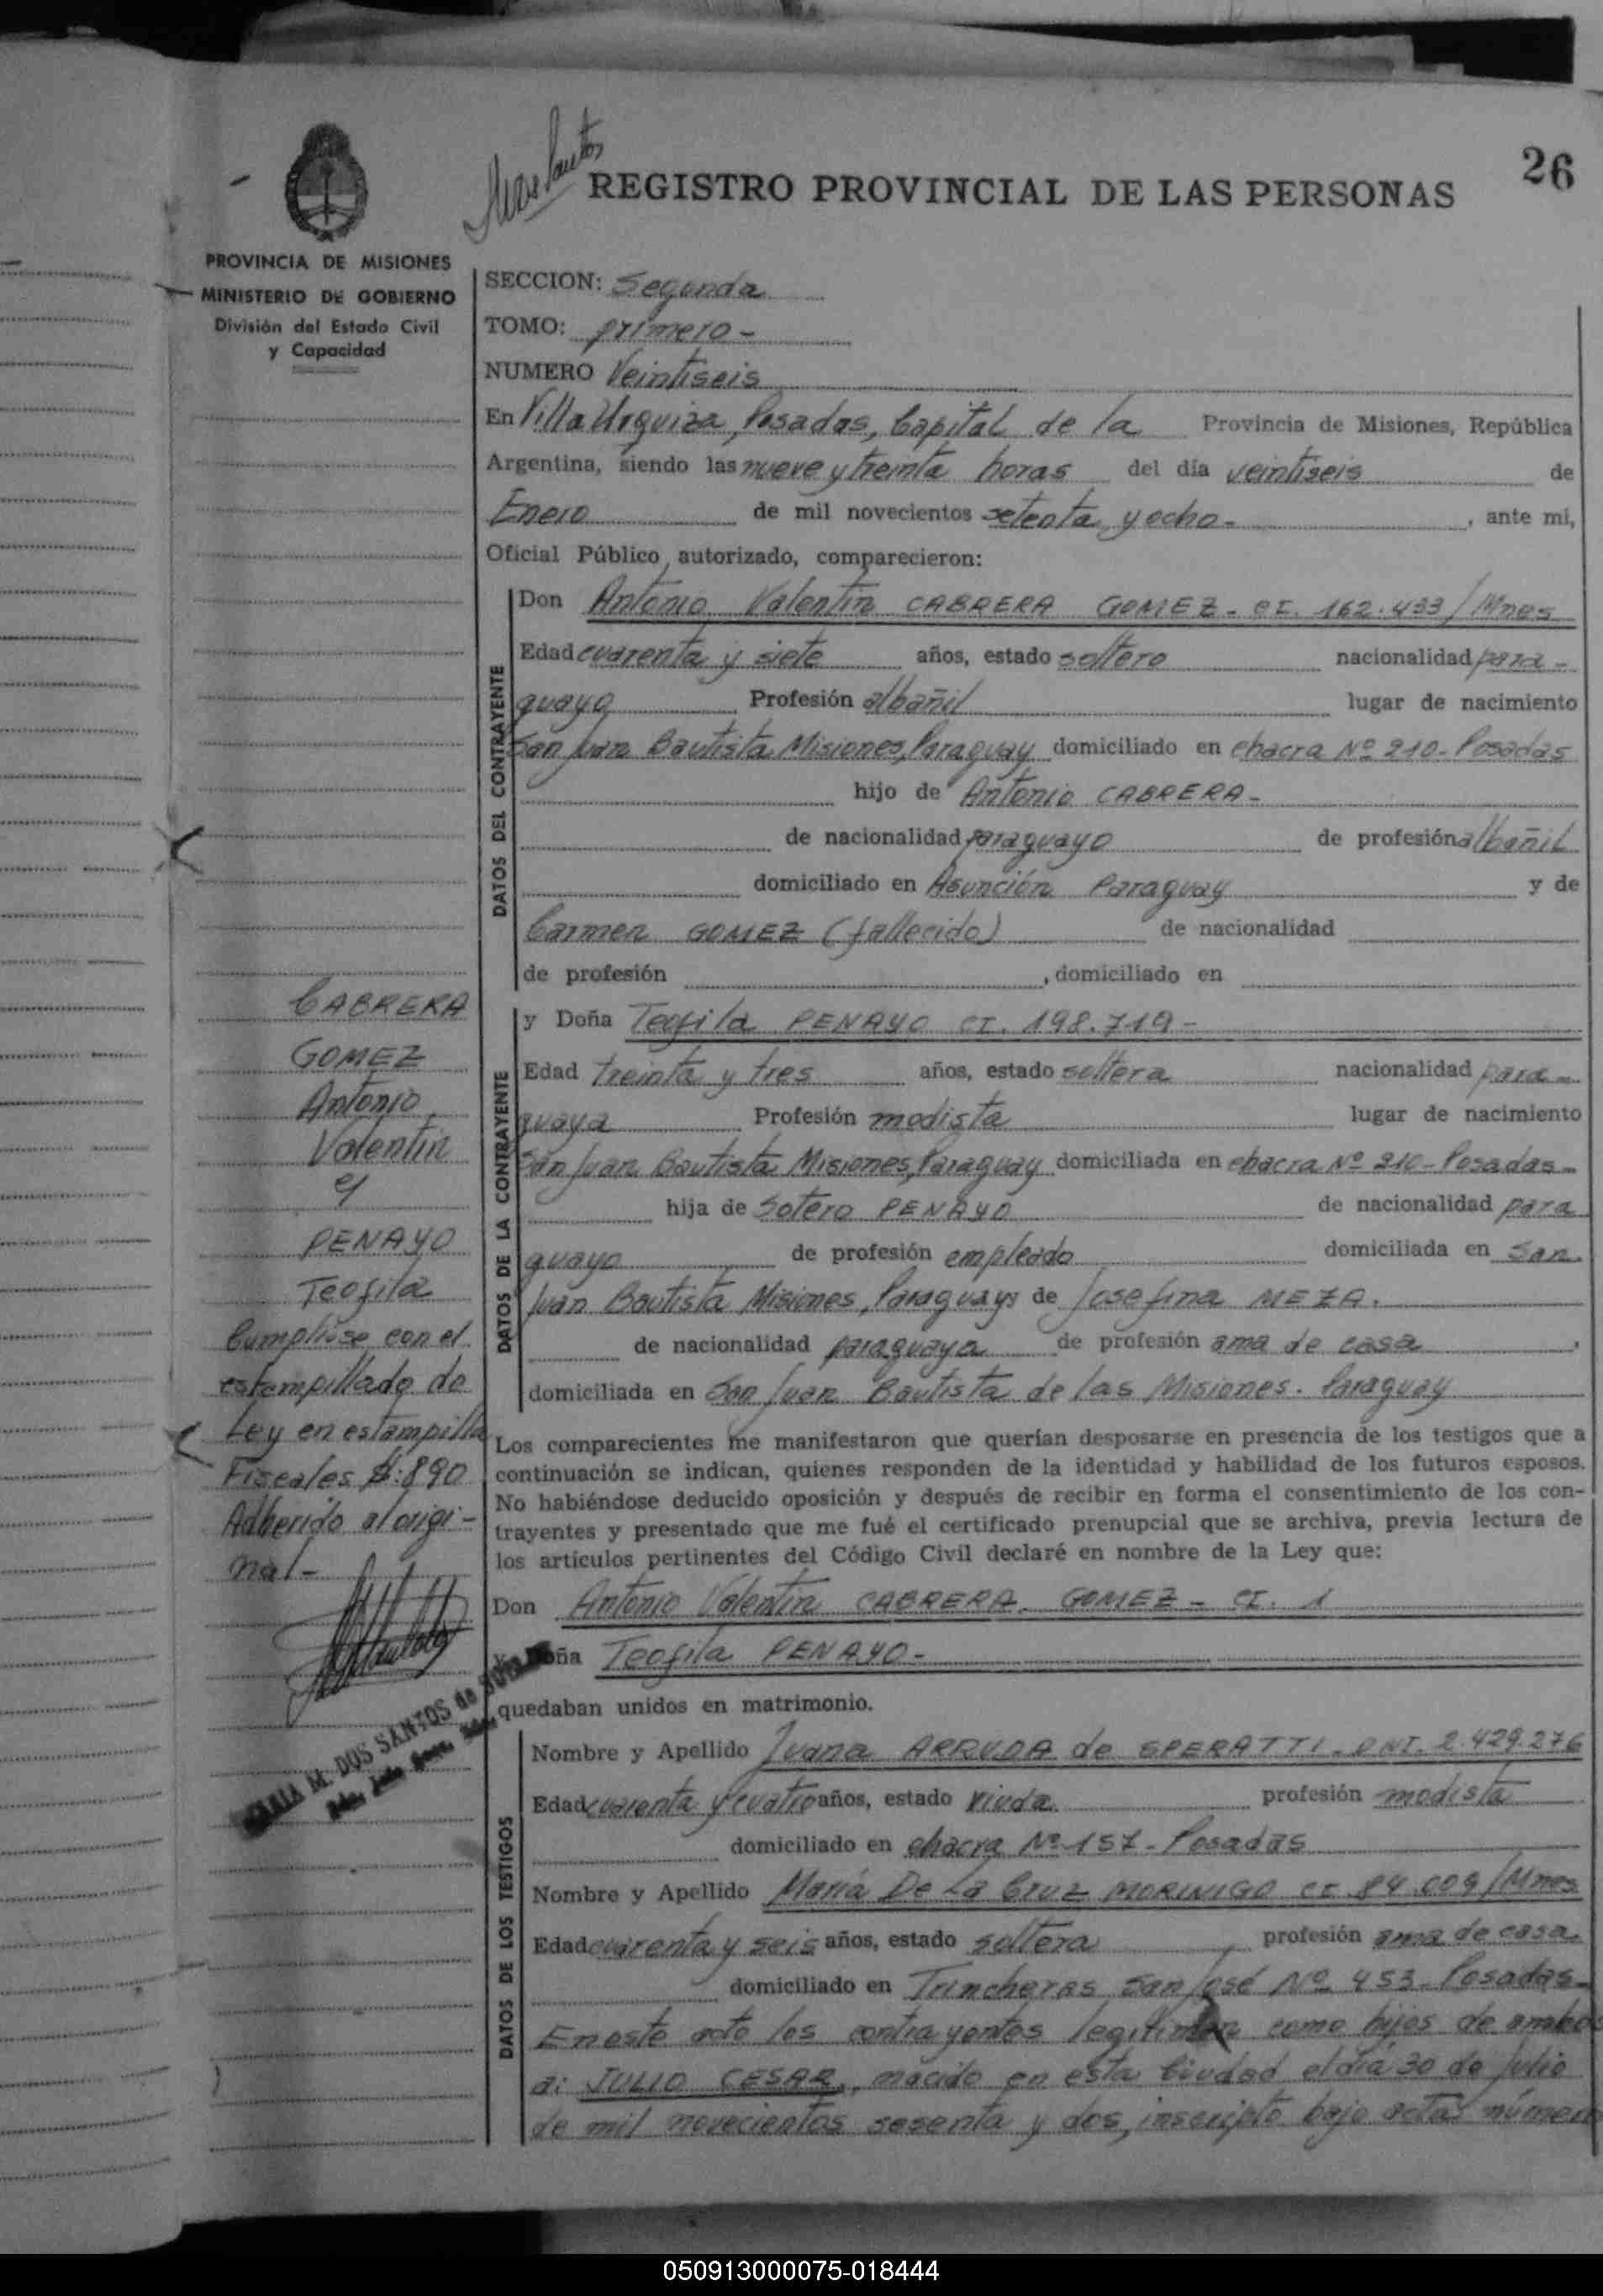 26
REGISTRO PROVINCIAL DE LAS PERSONAS
PROVINCIA DE MISIONES
MINISTERIO DE GOBIERNO
División del Estado Civil
y Capacidad
SECCION: Segunda
TOMO: primero -
NUMERO Veintiseis
En Villa Urquiza, Posadas, Capital de la Provincia de Misiones, República
Argentina, siendo las nueve y treinta horas del día veintiseis de
Enero de mil novecientos setenta y ocho - , ante mi,
Oficial Público autorizado, comparecieron:
DATOS DEL CONTRAYENTE
Don Antonio Valentin CABRERA GOMEZ - CI. 162.433/Mnes
Edad cuarenta y siete años, estado soltero nacionalidad para-
guayo Profesión albañil lugar de nacimiento
San Juan Bautista Misiones, Paraguay domiciliado en chacra Nº 210 - Posadas
hijo de Antonio CABRERA -
de nacionalidad paraguayo de profesión albañil
domiciliado en Asunción Paraguay y de
Carmen GOMEZ (fallecido) de nacionalidad
de profesión , domiciliado en
DATOS DE LA CONTRAYENTE
y Doña Teofila PENAYO CI. 198.719 -
Edad treinta y tres años, estado soltera nacionalidad para-
guaya Profesión modista lugar de nacimiento
San Juan Bautista Misiones, Paraguay domiciliada en chacra Nº 210 - Posadas -
hija de Sotero PENAYO de nacionalidad para
guayo de profesión empleado domiciliada en San
Juan Bautista Misiones, Paraguay y de Josefina MEZA.
de nacionalidad paraguaya de profesión ama de casa ,
domiciliada en San Juan Bautista de las Misiones. Paraguay
CABRERA
GOMEZ
Antonio
Valentin
y
PENAYO
Teofila
Cumplióse con el
estampillado de
Ley en estampilla
Fiscales $:890
Adherido al origi-
nal -
MARIA M. DOS SANTOS de
Los comparecientes me manifestaron que querían desposarse en presencia de los testigos que a
continuación se indican, quienes responden de la identidad y habilidad de los futuros esposos.
No habiéndose deducido oposición y después de recibir en forma el consentimiento de los con-
trayentes y presentado que me fué el certificado prenupcial que se archiva, previa lectura de
los artículos pertinentes del Código Civil declaré en nombre de la Ley que:
Don Antonio Valentin CABRERA GOMEZ - CI. 1
y Doña Teofila PENAYO -
quedaban unidos en matrimonio.
DATOS DE LOS TESTIGOS
Nombre y Apellido Juana ARRUDA de SPERATTI - DNI. 2.429.276
Edad cuarenta y cuatro años, estado viuda profesión modista
domiciliado en chacra Nº 157 - Posadas
Nombre y Apellido María De La Cruz MORINIGO CI 84.009/Mnes
Edad cuarenta y seis años, estado soltera profesión ama de casa
domiciliado en Trincheras San José Nº 453 - Posadas -
En este acto los contrayentes legitiman como hijos de ambos
a: JULIO CESAR, nacido en esta Ciudad el día 30 de Julio
de mil novecientos sesenta y dos, inscripto bajo acta número
050913000075-018444